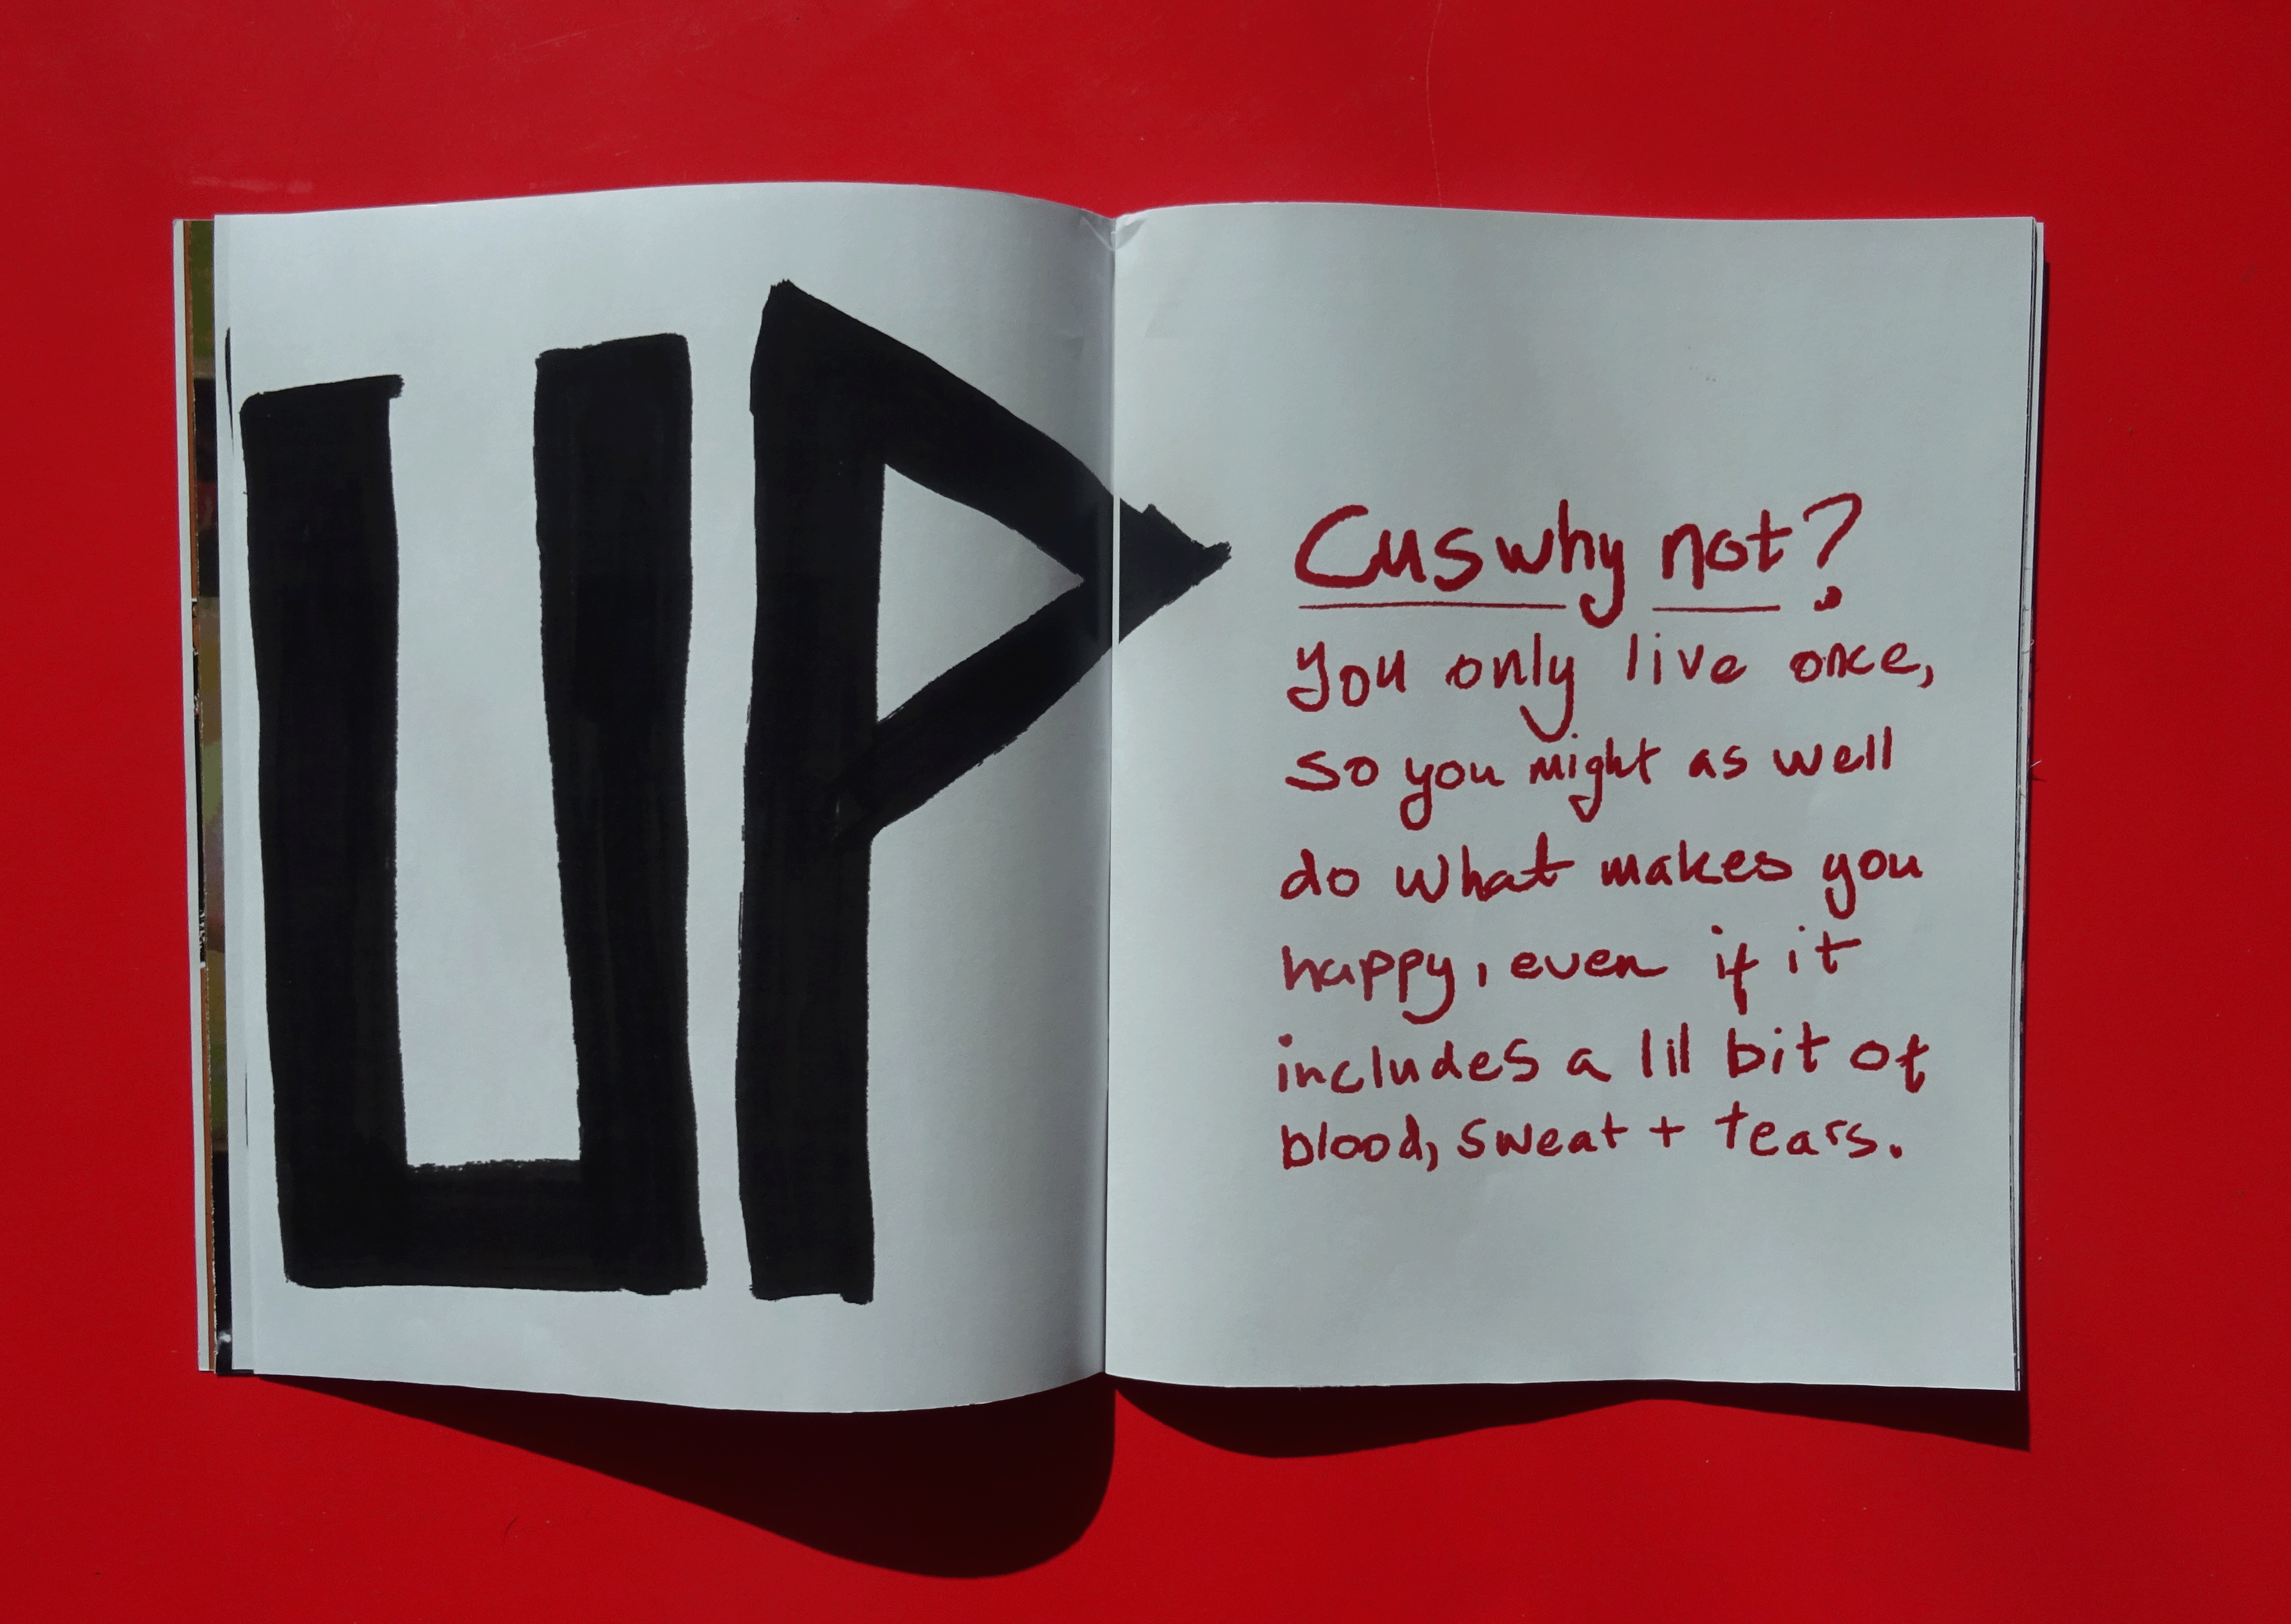 UP
Cus why not?
you only live once,
so you might as well
do what makes you
happy, even if it
includes a lil bit of
blood, sweat + tears.